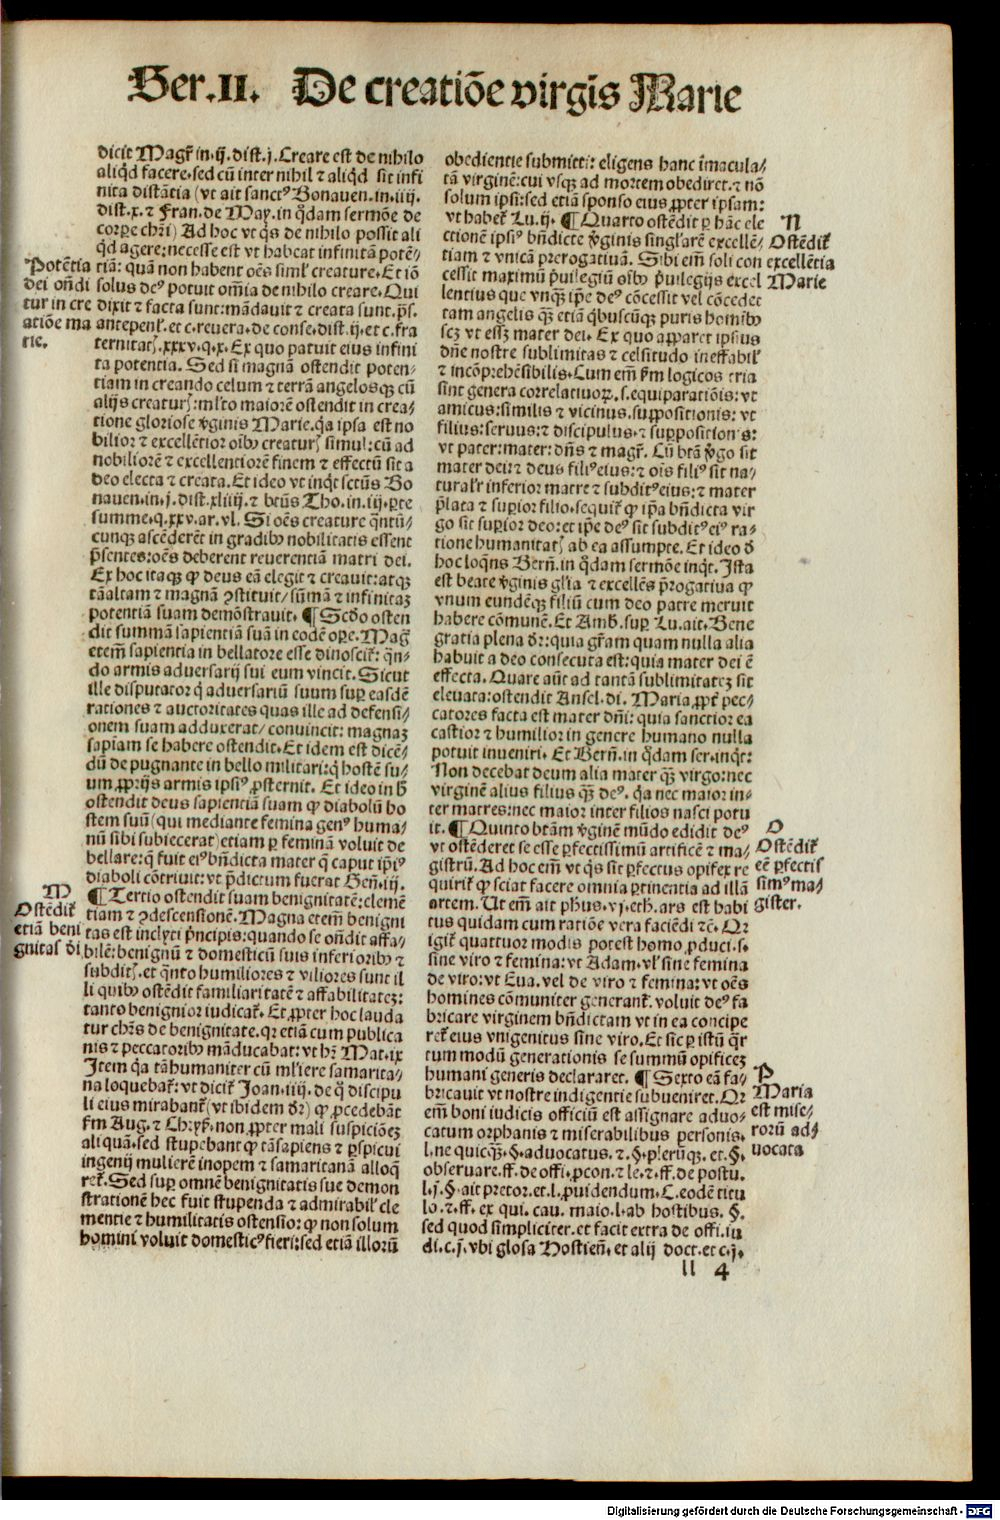 Ser.II. De creatiōe virgīs Marie
dicit Magr̄ in.ij.dist.j.Creare est de nihilo
aliq̇d facere.sed cū inter nihil ⁊ aliq̇d sit infi
nita distātia (vt ait sanctꝰ Bonauen.in.iiij.
dist.x.⁊ Fran.de May.in q̇dam sermōe de
corꝑe chr̄i) Ad hoc vt q̇s de nihilo possit ali
q̇d agere:necesse est vt habeat infinitā potē/
tiā: quā non habent oēs siml̓ creature.Et iō
solus deꝰ potuit om̄ia de nihilo creare.Qui
dixit ⁊ facta sunt:mādauit ⁊ creata sunt.p̄s.
antepenl̓.et c.reuera.de conse.dist.ij.et c.fra
ternitatꝭ.xxxv.q.x.Ex quo patuit eius infini
ta potentia. Sed si magnā ostendit poten/
tiam in creando celum ⁊ terrā angelosqꝫ cū
alijs creaturꝭ:ml̓to maiorē ostendit in crea/
tione gloriose v̓ginis Marie.q̇a ipsa est no
bilior ⁊ excellētior oībꝫ creaturꝭ simul:cū ad
nobiliorē ⁊ excellentiorē finem ⁊ effectū sit a
deo electa ⁊ creata.Et ideo vt inq̇t sctūs Bo
nauen.in.j.dist.xliiij.⁊ btūs Tho.in.iij.ꝑte
summe.q.xxv.ar.vl. Si oēs creature q̄ntū/
cunqꝫ ascēderēt in gradibꝫ nobilitatis essent
p̄sentes:oēs deberent reuerentiā matri dei.
Ex hoc itaqꝫ ꝙ deus eā elegit ⁊ creauit:atqꝫ
tāaltam ⁊ magnā ꝯstituit/sūmā ⁊ infinitaꝫ
potentiā suam demōstrauit. ¶ Scd̓o osten
dit summā sapientiā suā in eodē oꝑe.Mag̓
etem̄ sapientia in bellatore esse dinoscit᷑: q̄n/
do armis aduersarij sui eum vincit.Sicut
ille disputator q̇ aduersariū suum suꝑ easdē
rationes ⁊ auctoritates quas ille ad defensi/
onem suam adduxerat/conuincit: magnaꝫ
sapīam se habere ostendit.Et idem est dicē/
dū de pugnante in bello militari:q̇ hostē su/
um ꝓprijs armis ipsiꝰ ꝓsternit. Et ideo in h̓
ostendit deus sapientiā suam ꝙ diabolū ho
stem suū(qui mediante femina genꝰ huma/
nū sibi subiecerat)etiam ꝑ feminā voluit de
bellare:q̄ fuit eiꝰ bn̄dicta mater q̄ caput ip̄iꝰ
diaboli cōtriuit:vt p̄dictum fuerat Gen̄.iij.
¶ Tertio ostendit suam benignitatē:clemē
tiam ⁊ ꝯdescensionē.Magna etem̄ benigni
tas est inclyti p̄ncipis:quando se on̄dit affa/
bilē:benignū ⁊ domesticū suis inferioribꝫ ⁊
subditꝭ.et q̄nto humiliores ⁊ viliores sunt il
li quibꝫ ostēdit familiaritatē ⁊ affabilitateꝫ:
tanto benignior iudicat᷑.Et ꝓpter hoc lauda
tur chr̄s de benignitate.qꝛ etiā cum publica
nis ⁊ peccatoribꝫ māducabat:vt hr̄ Mat.ix
Item q̇a tā humaniter cū ml̓iere samarita/
na loquebat᷑:vt dicit᷑ Joan.iiij.de q̇ discipu
li eius mirabant᷑(vt ibidem dr̄) ꝙ ꝓcedebāt
fm Aug.⁊ Chryſ.non ꝓpter mali suspiciōeꝫ
aliquā.sed stupebant ꝙ tā sapiens ⁊ ꝑspicui
ingenij mulierē inopem ⁊ samaritanā alloq̄
ret᷑.Sed suꝑ omnē benignitatis sue demon
strationē hec fuit stupenda ⁊ admirabil̓ cle
mentie ⁊ humilitatis ostensio:ꝙ non solum
homini voluit domesticꝰ fieri:sed etiā illorū
Potētia
dei on̄di
tur in cre
atiōe ma
rie.
M
Ostēdit᷑
etiā beni
gnitas di
obedientie submitti: eligens hanc īmacula/
tā virginē:cui vsqꝫ ad mortem obediret.⁊ nō
solum ipsi:sed etiā sponso eius ꝓpter ipsam:
vt habet᷑ Lu.ij. ¶ Quarto ostēdit ꝑ hāc ele
ctionē ipsiꝰ bn̄dicte v̓ginis singl̓arē excellē/
tiam ⁊ vnicā prerogatiuā. Sibi em̄ soli con
cessit maximū p̓uilegiū oībꝫ p̓uilegijs excel
lentius que vnq̄ꝫ ip̄e deꝰ cōcessit vel cōcedet
tam angelis q̄ꝫ etiā q̇buscūqꝫ puris homībꝫ
scꝫ vt esset mater dei. Ex quo apparet ipsius
dn̄e nostre sublimitas ⁊ celsitudo ineffabil̓
⁊ incōprehēsibilis.Cum em̄ fm logicos tria
sint genera correlatiuoꝝ.s.equiparatiōis:vt
amicus:similis ⁊ vicinus.suppositionis: vt
filius:seruus:⁊ discipulus.⁊ suppositionis:
vt pater:mater:dn̄s ⁊ magr̄. Cū btā v̓go sit
mater dei:⁊ deus filiꝰ eius:⁊ oīs filiꝰ sit na/
turalr̄ inferior matre ⁊ subditꝰ eius:⁊ mater
p̄lata ⁊ suꝑior filio.sequit᷑ ꝙ ip̄a bn̄dicta vir
go sit suꝑior deo:et ip̄e deꝰ sit subditꝰ eiꝰ ra/
tione humanitatꝭ ab ea assumpte. Et ideo d̓
hoc loq̄ns Bern̄.in q̇dam sermōe inq̇t. Ista
est beate v̓ginis gl̓ia ⁊ excellēs p̄rogatiua ꝙ
vnum eundēqꝫ filiū cum deo patre meruit
habere cōmunē.Et Amb.suꝑ Lu.ait.Bene
gratia plena dr̄:quia gr̄am quam nulla alia
habuit a deo consecuta est:quia mater dei ē
effecta. Quare aūt ad tantā sublimitateꝫ sit
eleuata:ostendit Ansel.di. Maria ꝓpt̓ pec/
catores facta est mater dn̄i: quia sanctior ea
castior ⁊ humilior in genere humano nulla
potuit inueniri. Et Bern̄.in q̇dam ser.inq̇t:
Non decebat deum alia mater q̄ꝫ virgo:nec
virginē alius filius q̄ꝫ deꝰ.q̇a nec maior in/
ter matres:nec maior inter filios nasci potu
it. ¶ Quinto btām v̓ginē mūdo edidit deꝰ
vt ostēderet se esse ꝑfectissimū artificē ⁊ ma/
gistrū.Ad hoc em̄ vt q̇s sit ꝑfectus opifex re
quirit᷑ ꝙ sciat facere omnia ꝑtinentia ad illā
artem. Ut em̄ ait ph̓us.vj.eth.ars est habi
tus quidam cum ratiōe vera faciēdi ⁊c̄. Or
igit᷑ quattuor modis potest homo ꝓduci.s.
sine viro ⁊ femina:vt Adam.vl̓ sine femina
de viro:vt Eua.vel de viro ⁊ femina:vt oēs
homines cōmuniter generant᷑.voluit deꝰ fa
bricare virginem bn̄dictam vt in ea concipe
ret᷑ eius vnigenitus sine viro.Et sic ꝑ istū q̇r
tum modū generationis se summū opificeꝫ
humani generis declararet. ¶ Sexto eā fa/
bricauit vt nostre indigentie subueniret.Or
em̄ boni iudicis officiū est assignare aduo/
catum orphanis ⁊ miserabilibus personis.
l.ne quicq̄ꝫ.§.aduocatus.⁊.§.pleruqꝫ.et.§.
obseruare.ff.de offi.ꝓcon.⁊ le.⁊.ff.de postu.
l.j.§.ait pretor.et.l.ꝓuidendum.C.eodē titu
lo.⁊.ff. ex qui. cau. maio.l.ab hostibus. §.
sed quod simpliciter.et facit extra de offi.iu
di.c.j.vbi glosa Hostien̄.et alij doct.et c.j.
N
Ostēdit᷑
excellētia
Marie
O
Ostēdit᷑
eē ꝑfectis
simꝰ ma/
gister.
P
Maria
est mise/
rorū ad/
uocata
ll 4
Digitalisierung gefördert durch die Deutsche Forschungsgemeinschaft - DFG